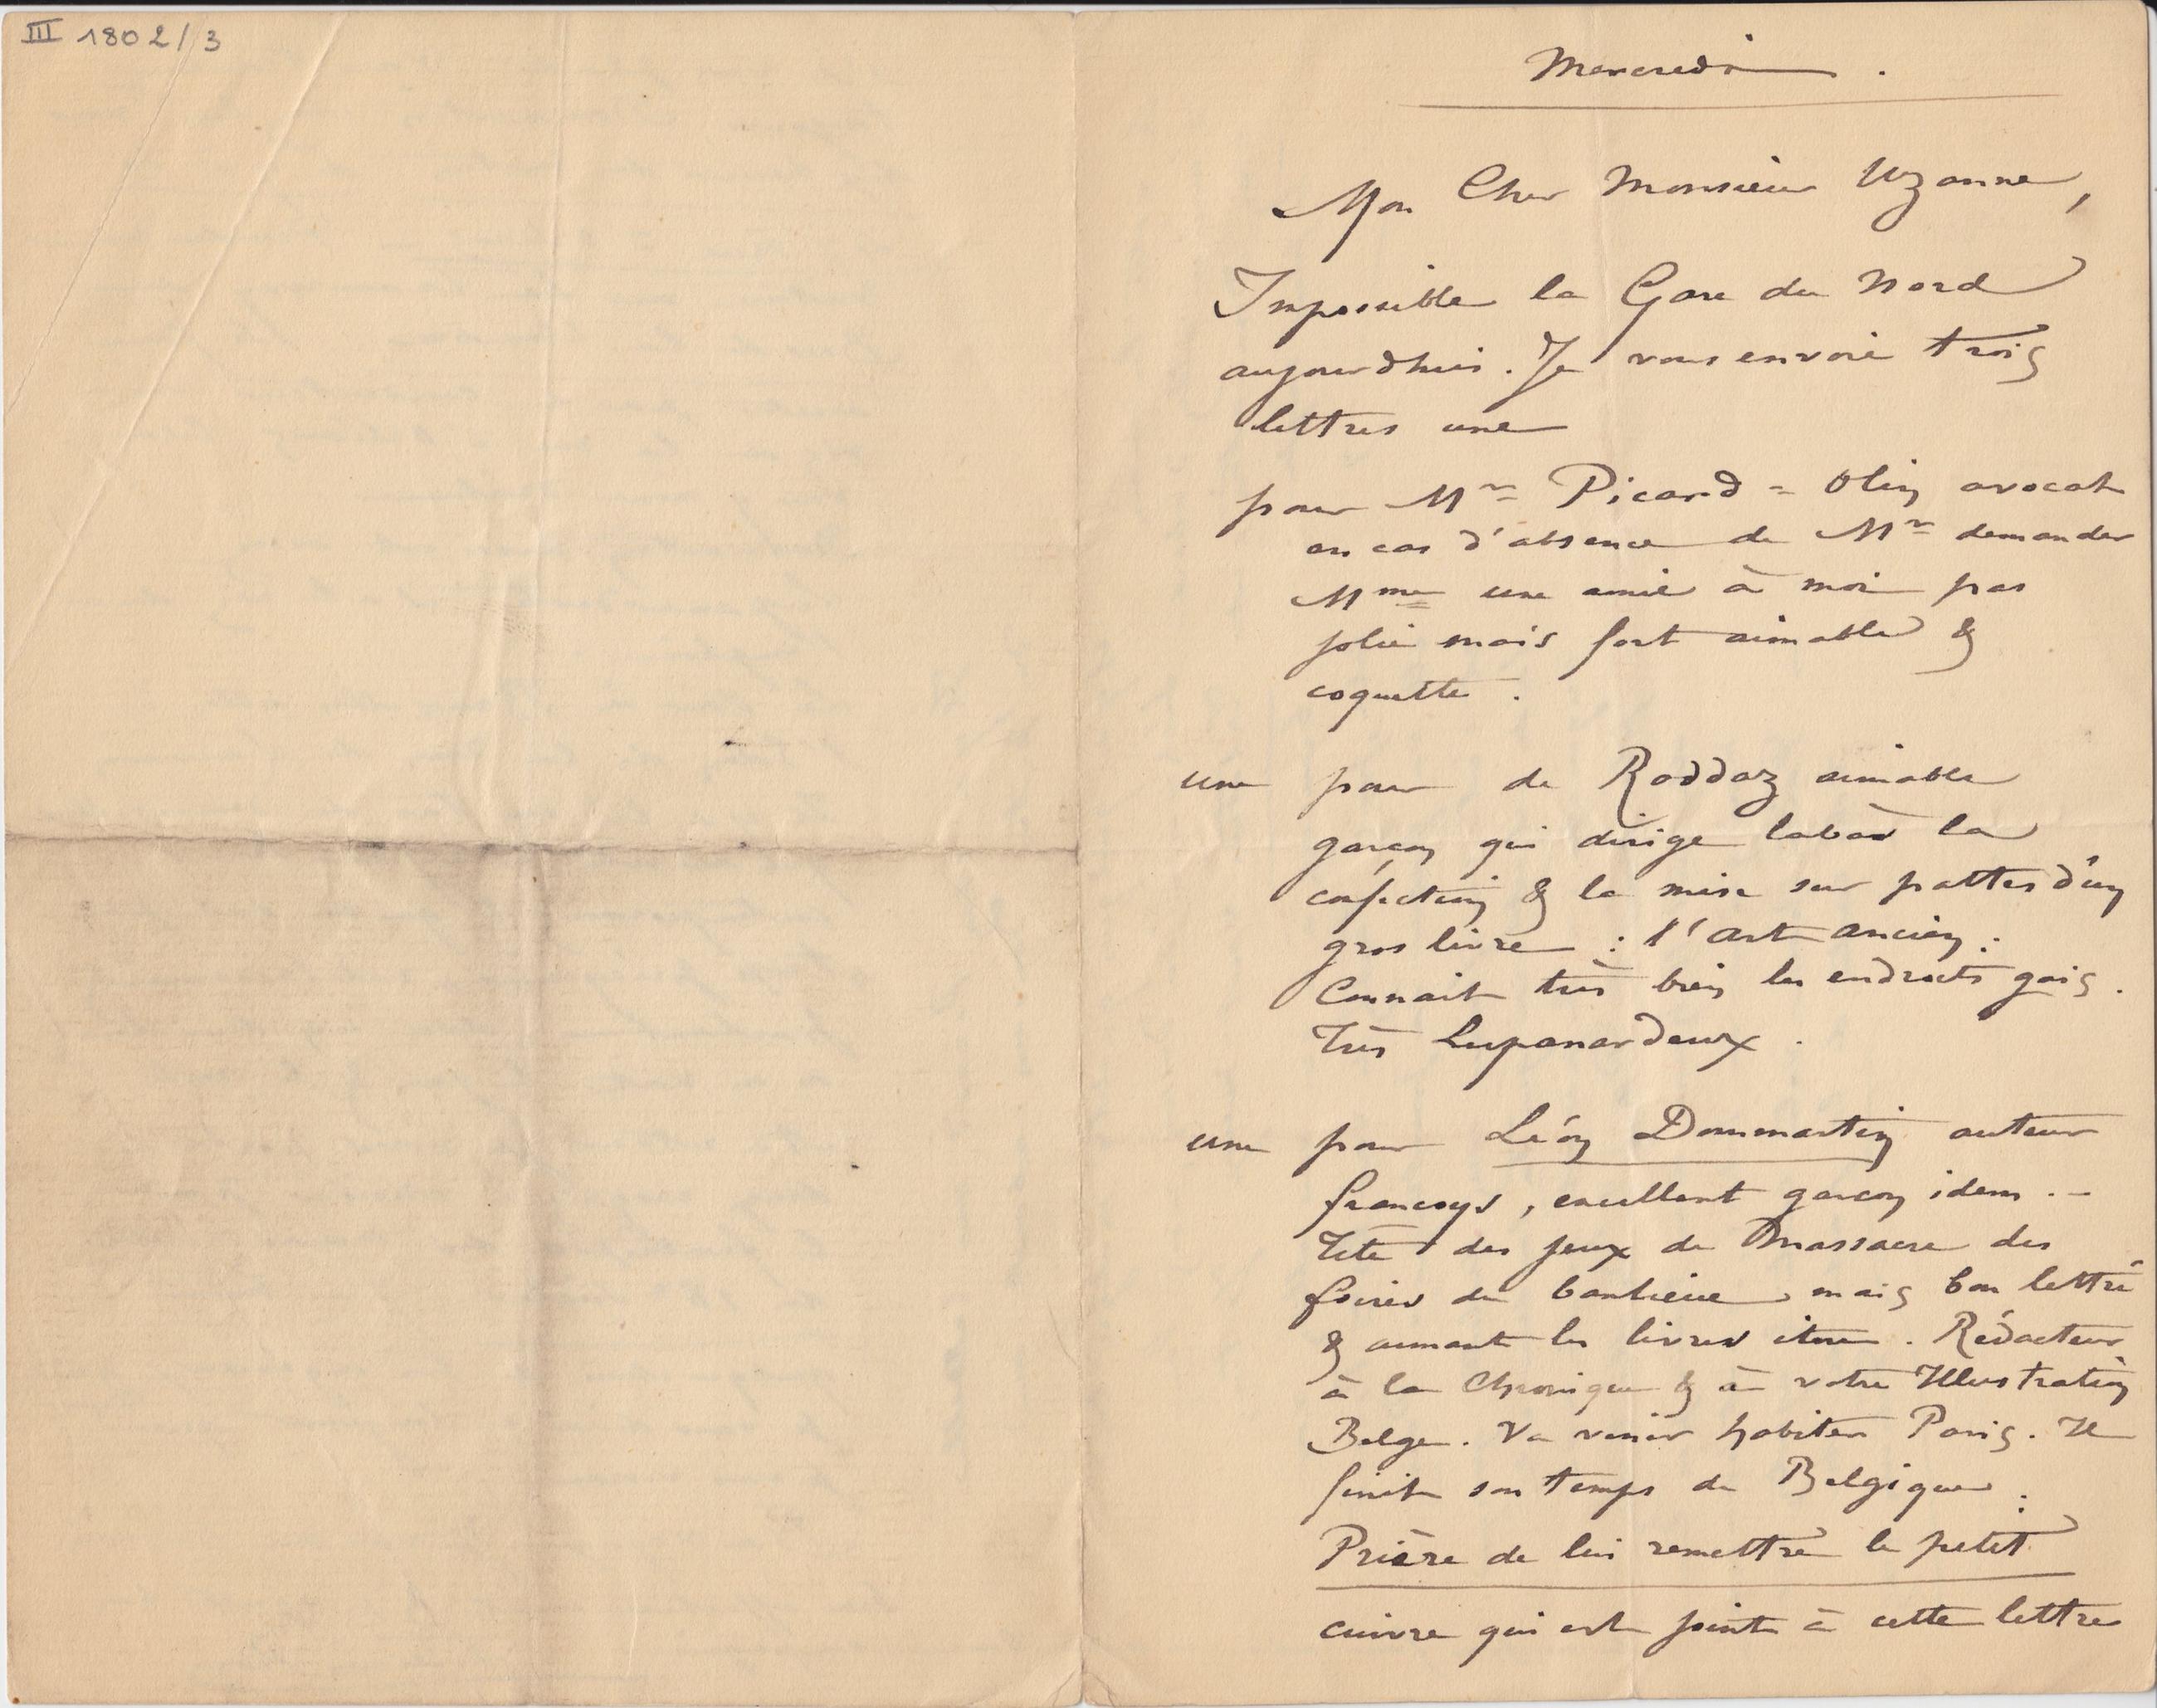 III 1802/3
Mercredi.
Mon Cher Monsieur Uzanne,
Impossible la Gare du Nord
aujourdhui. Je vous envoie trois
lettres une
pour Mr Picard = Olin avocat
en cas d'absence de Mr demander
Mme une amie à moi pas
jolie mais fort aimable &
coquette.
une pour de Roddaz aimable
garçon qui dirige labàs la
confection & la mise sur pattes d'un
gros livre : l'art ancien.
Connait très bien les endroits gais.
Très Lupanardeux.
une pour Léon Dommartin auteur
françoys, excellent garçon idem. -
Tête des jeux de Massacre des
foires de banlieue mais bon lettré
& aimant les livres itou. Rédacteur
à la Chronique & à votre Illustration
Belge. Va venir habiter Paris. Il
finit son temps de Belgique.
Prière de lui remettre le petit
cuivre qui est joint à cette lettre